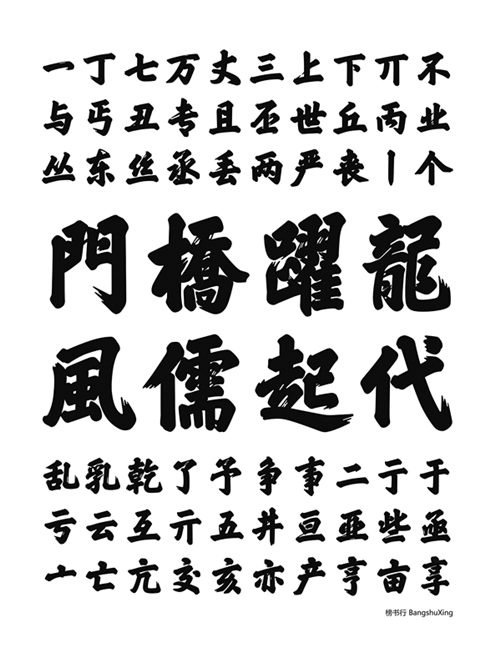 一丁七万丈三上下丌不
与丐丑专且丕世丘丙业
丛东丝丞丢两严丧丨个
龍躍橋門
代起儒風
乱乳乾了予争事二亍于
亏云互亓五井亘亚些亟
亠亡亢交亥亦产亨亩享
榜书行 BangshuXing